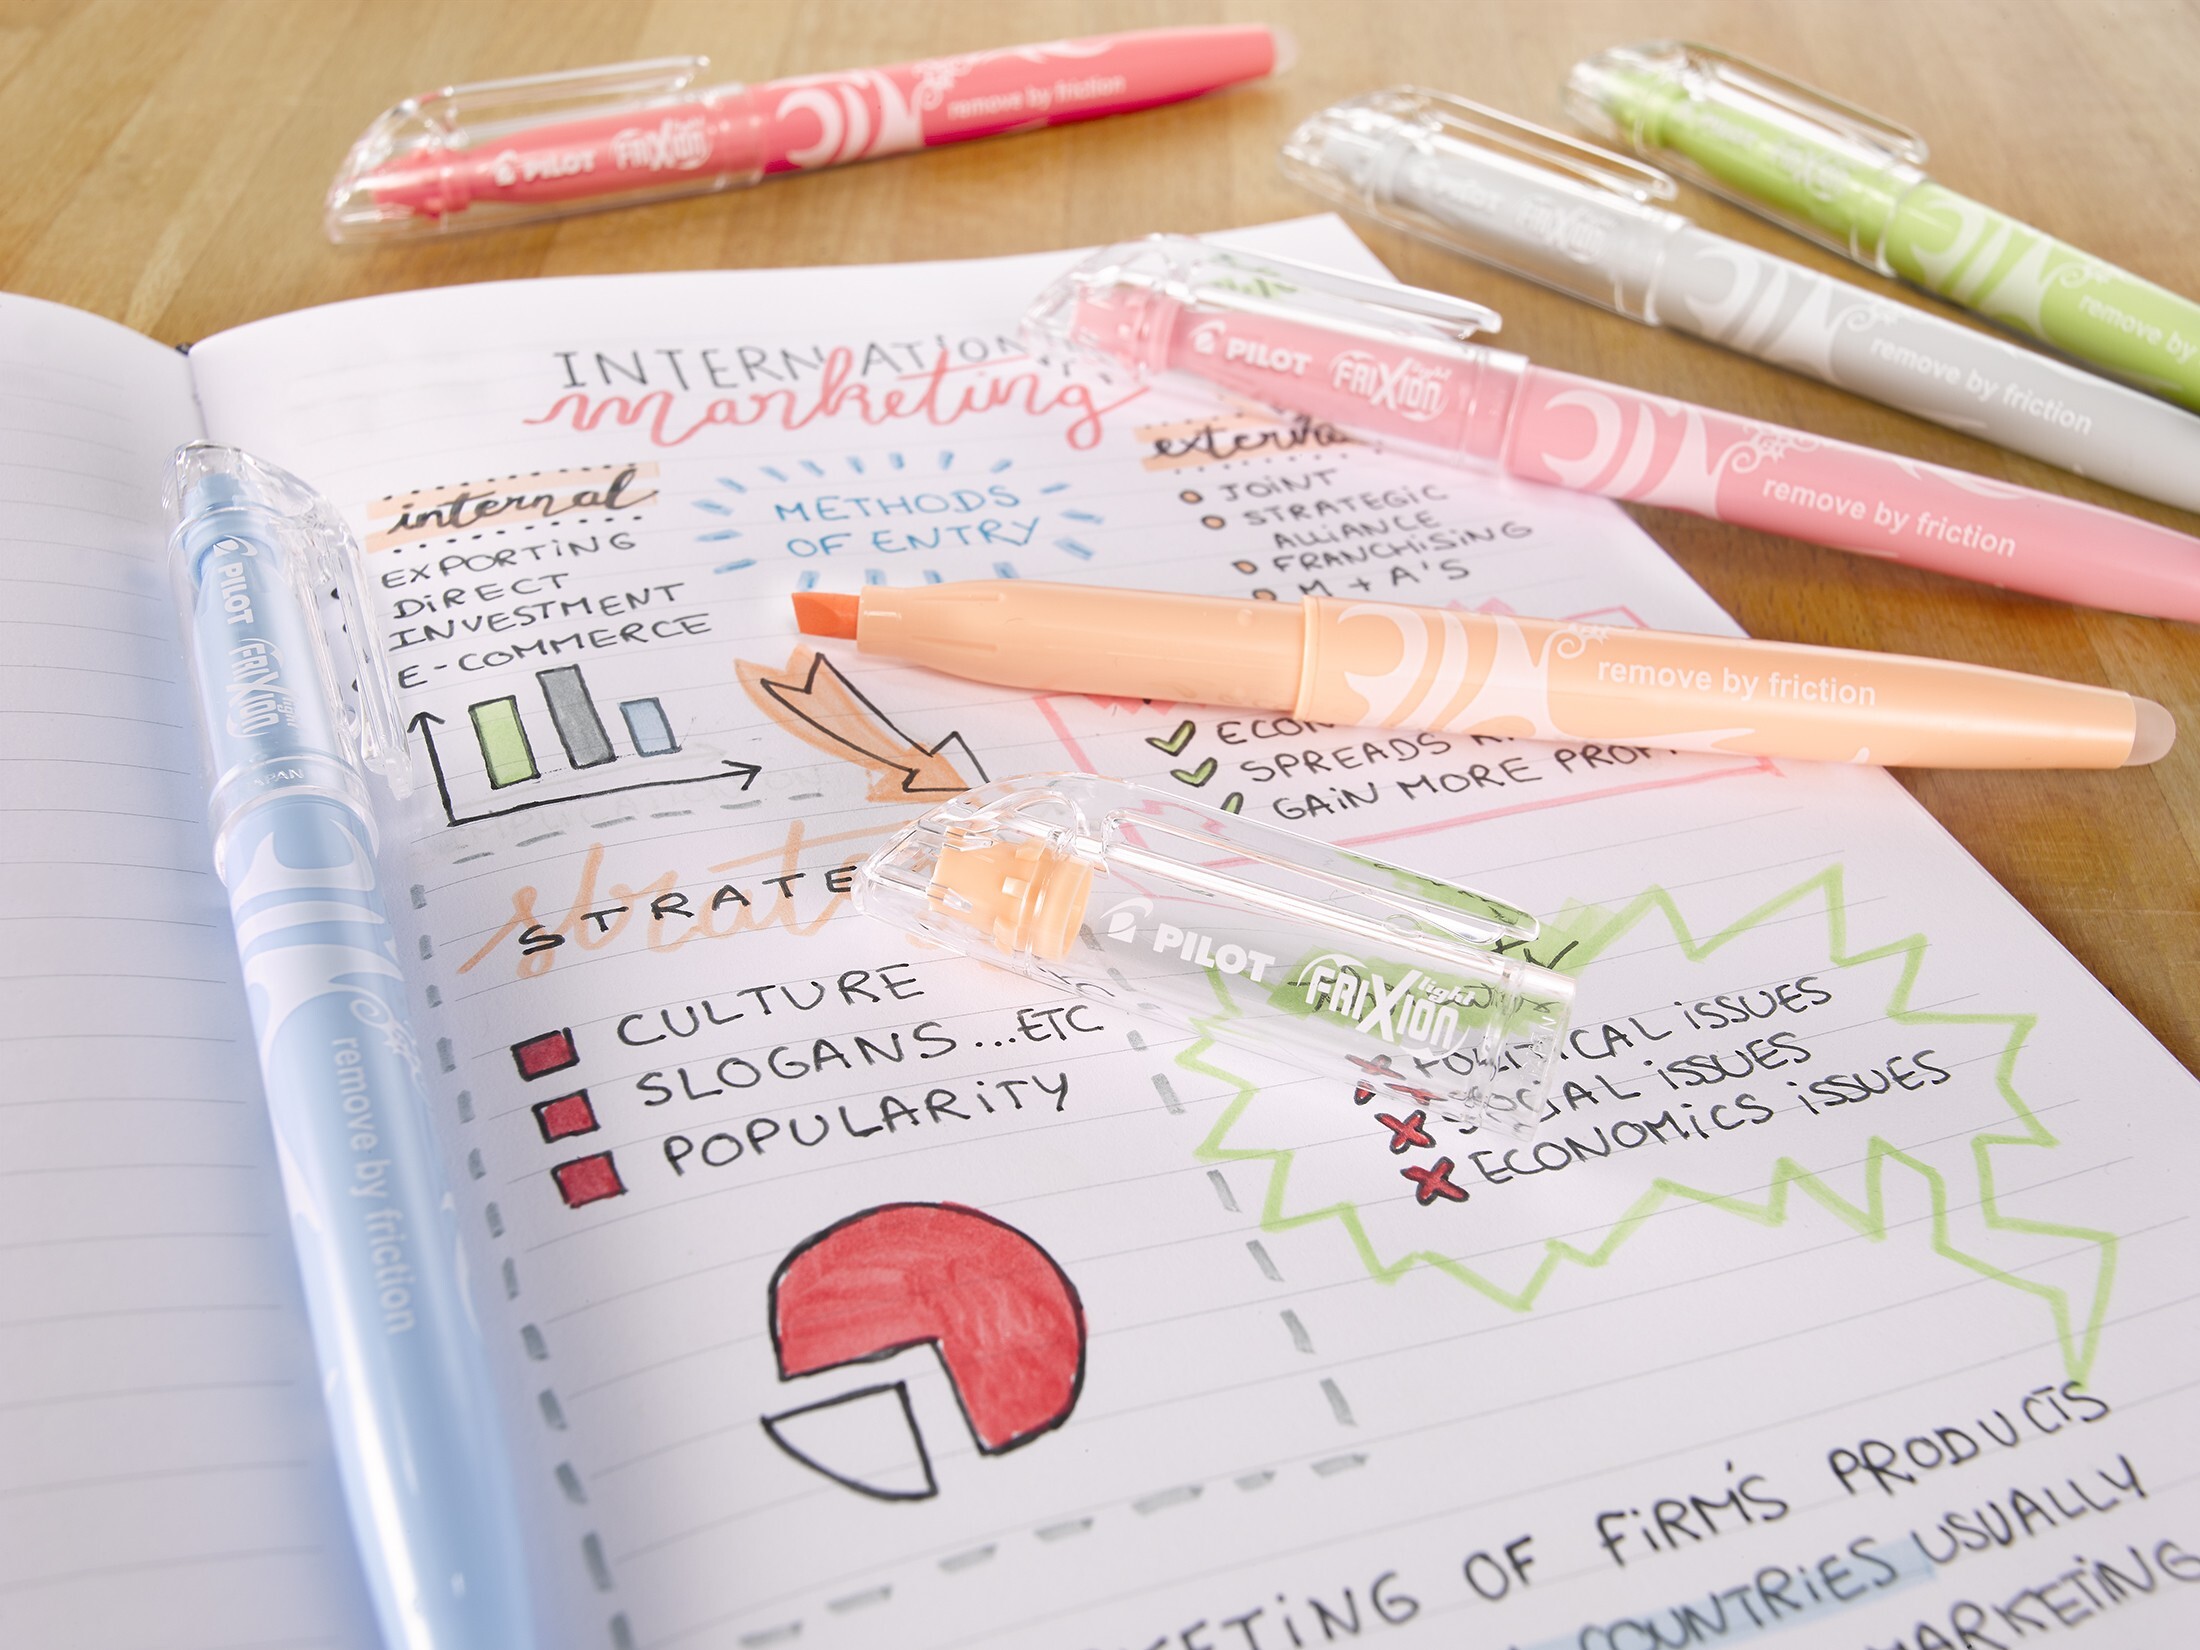 PILOT FRIXION light remove by friction
PILOT FRIXION remove by friction
remove by
PILOT FRIXION light remove by friction
INTERNATION
marketing
internal
EXPORTING
DIRECT
INVESTMENT
E-COMMERCE
METHODS
OF ENTRY
JOINT
STRATEGIC
ALLIANCE
FRANCHISING
M + A'S
remove by friction
SPREADS
GAIN MORE
PILOT FRIXION light JAPAN remove by friction
STRATE
CULTURE
SLOGANS...ETC
POPULARITY
PILOT FRIXION light
POLITICAL ISSUES
SOCIAL ISSUES
ECONOMICS ISSUES
OF FIRM'S PRODUCTS
COUNTRIES USUALLY
MARKETING